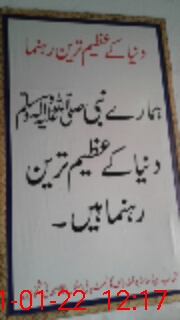 دنیا کے عظیم ترین رہنما
ہمارے نبی صلی اللہ علیہ وسلم
دنیا کے عظیم ترین
رہنما ہیں۔
1-01-22 12:17